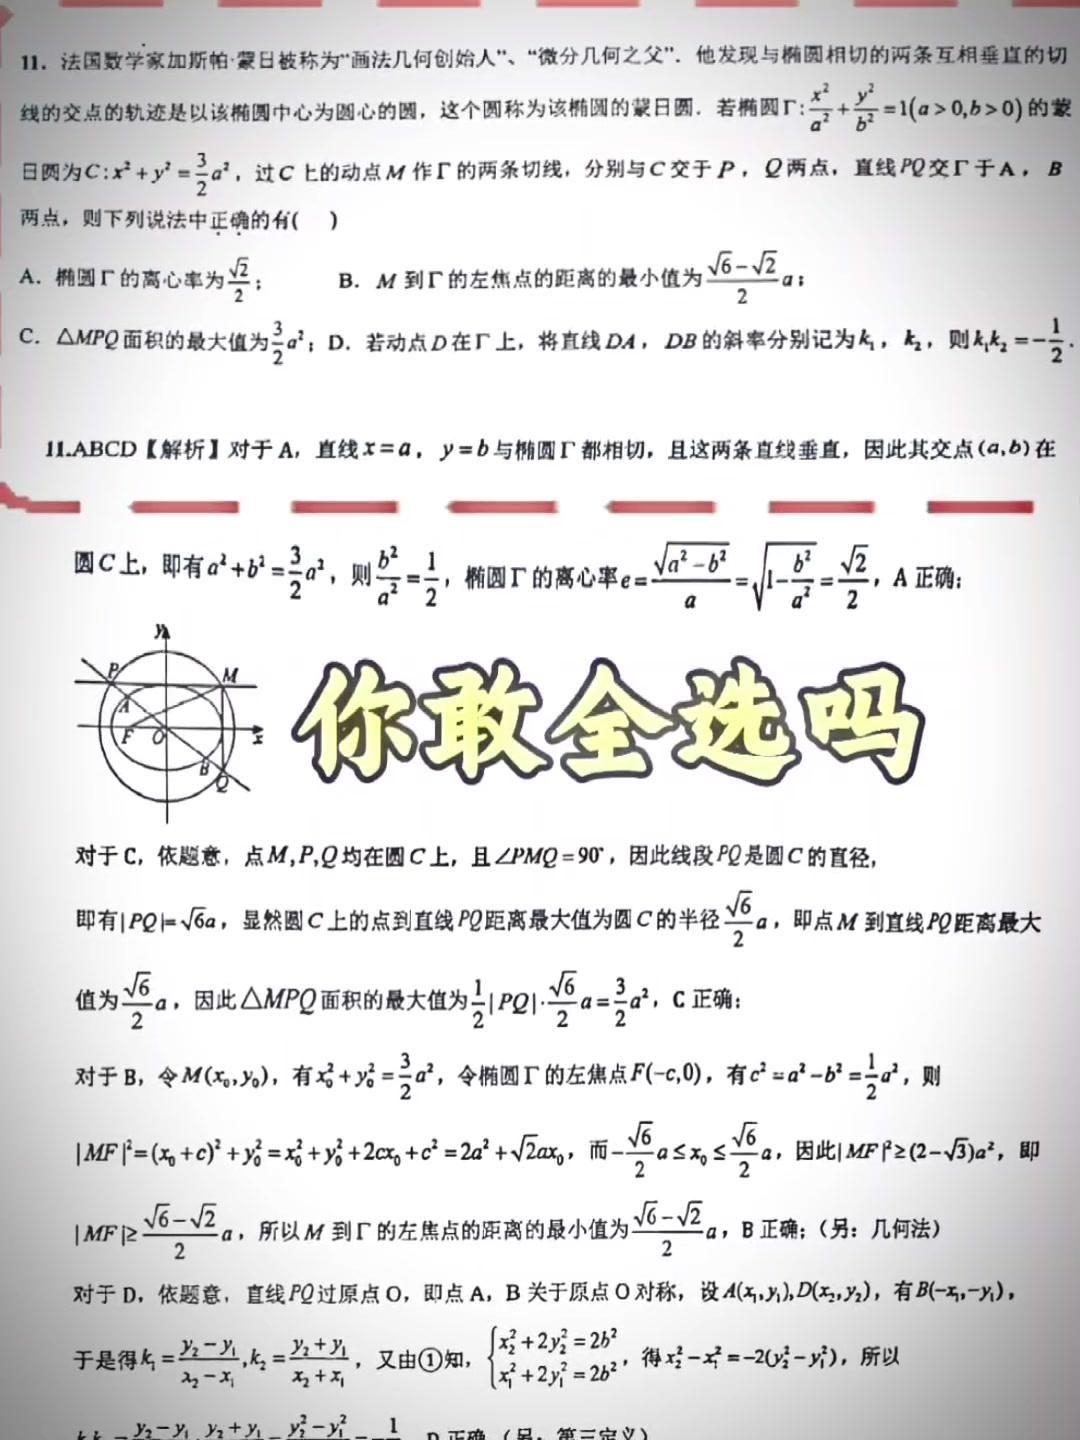 11. 法国数学家加斯帕·蒙日被称为“画法几何创始人”、“微分几何之父”. 他发现与椭圆相切的两条互相垂直的切
线的交点的轨迹是以该椭圆中心为圆心的圆，这个圆称为该椭圆的蒙日圆. 若椭圆Γ: x²/a² + y²/b² = 1(a > 0, b > 0) 的蒙
日圆为 C: x² + y² = 3/2 a²，过 C 上的动点 M 作 Γ 的两条切线，分别与 C 交于 P，Q 两点，直线 PQ 交 Γ 于 A，B
两点，则下列说法中正确的有( )
A. 椭圆 Γ 的离心率为 √2/2； B. M 到 Γ 的左焦点的距离的最小值为 (√6-√2)/2 a；
C. △MPQ 面积的最大值为 3/2 a²； D. 若动点 D 在 Γ 上，将直线 DA，DB 的斜率分别记为 k₁，k₂，则 k₁k₂ = -1/2.
11.ABCD【解析】对于 A，直线 x = a，y = b 与椭圆 Γ 都相切，且这两条直线垂直，因此其交点 (a,b) 在
圆 C 上，即有 a² + b² = 3/2 a²，则 b²/a² = 1/2，椭圆 Γ 的离心率 e = √(a²-b²)/a = √(1-b²/a²) = √2/2，A 正确；
y
P M
A
F O x
B
Q
你敢全选吗
对于 C，依题意，点 M,P,Q 均在圆 C 上，且 ∠PMQ = 90°，因此线段 PQ 是圆 C 的直径，
即有 |PQ|= √6a，显然圆 C 上的点到直线 PQ 距离最大值为圆 C 的半径 √6/2 a，即点 M 到直线 PQ 距离最大
值为 √6/2 a，因此 △MPQ 面积的最大值为 1/2 |PQ|· √6/2 a = 3/2 a²，C 正确；
对于 B，令 M(x₀,y₀)，有 x₀² + y₀² = 3/2 a²，令椭圆 Γ 的左焦点 F(-c,0)，有 c² = a² - b² = 1/2 a²，则
|MF|² = (x₀ + c)² + y₀² = x₀² + y₀² + 2cx₀ + c² = 2a² + √2ax₀，而 -√6/2 a ≤ x₀ ≤ √6/2 a，因此 |MF|² ≥ (2-√3)a²，即
|MF|≥ (√6-√2)/2 a，所以 M 到 Γ 的左焦点的距离的最小值为 (√6-√2)/2 a，B 正确；（另：几何法）
对于 D，依题意，直线 PQ 过原点 O，即点 A，B 关于原点 O 对称，设 A(x₁,y₁),D(x₂,y₂)，有 B(-x₁,-y₁)，
于是得 k₁ = (y₂-y₁)/(x₂-x₁), k₂ = (y₂+y₁)/(x₂+x₁)，又由①知，{x₂² + 2y₂² = 2b² x₁² + 2y₁² = 2b²，得 x₂² - x₁² = -2(y₂² - y₁²)，所以
k₁k₂ = (y₂-y₁)·(y₂+y₁) = y₂²-y₁² = -1 D 正确（另：第三定义）